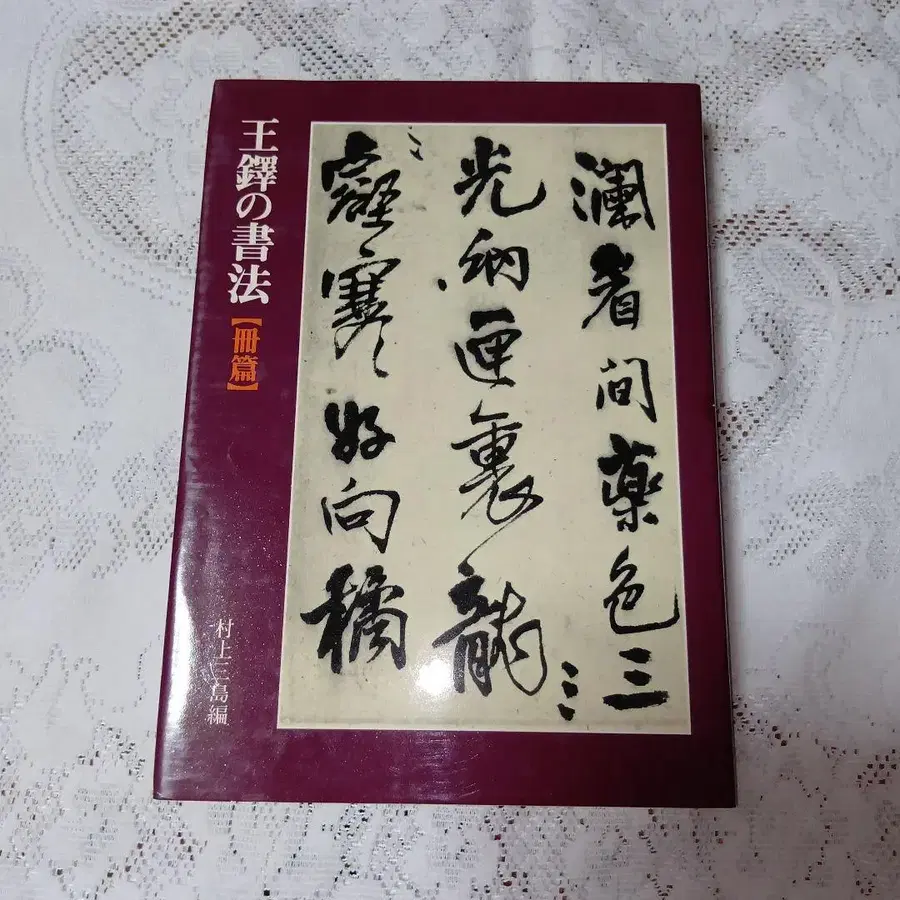 王鐸の書法【冊篇】
村上三島編
瀾看間藥色三
光納匣裏龍
寒好向橘